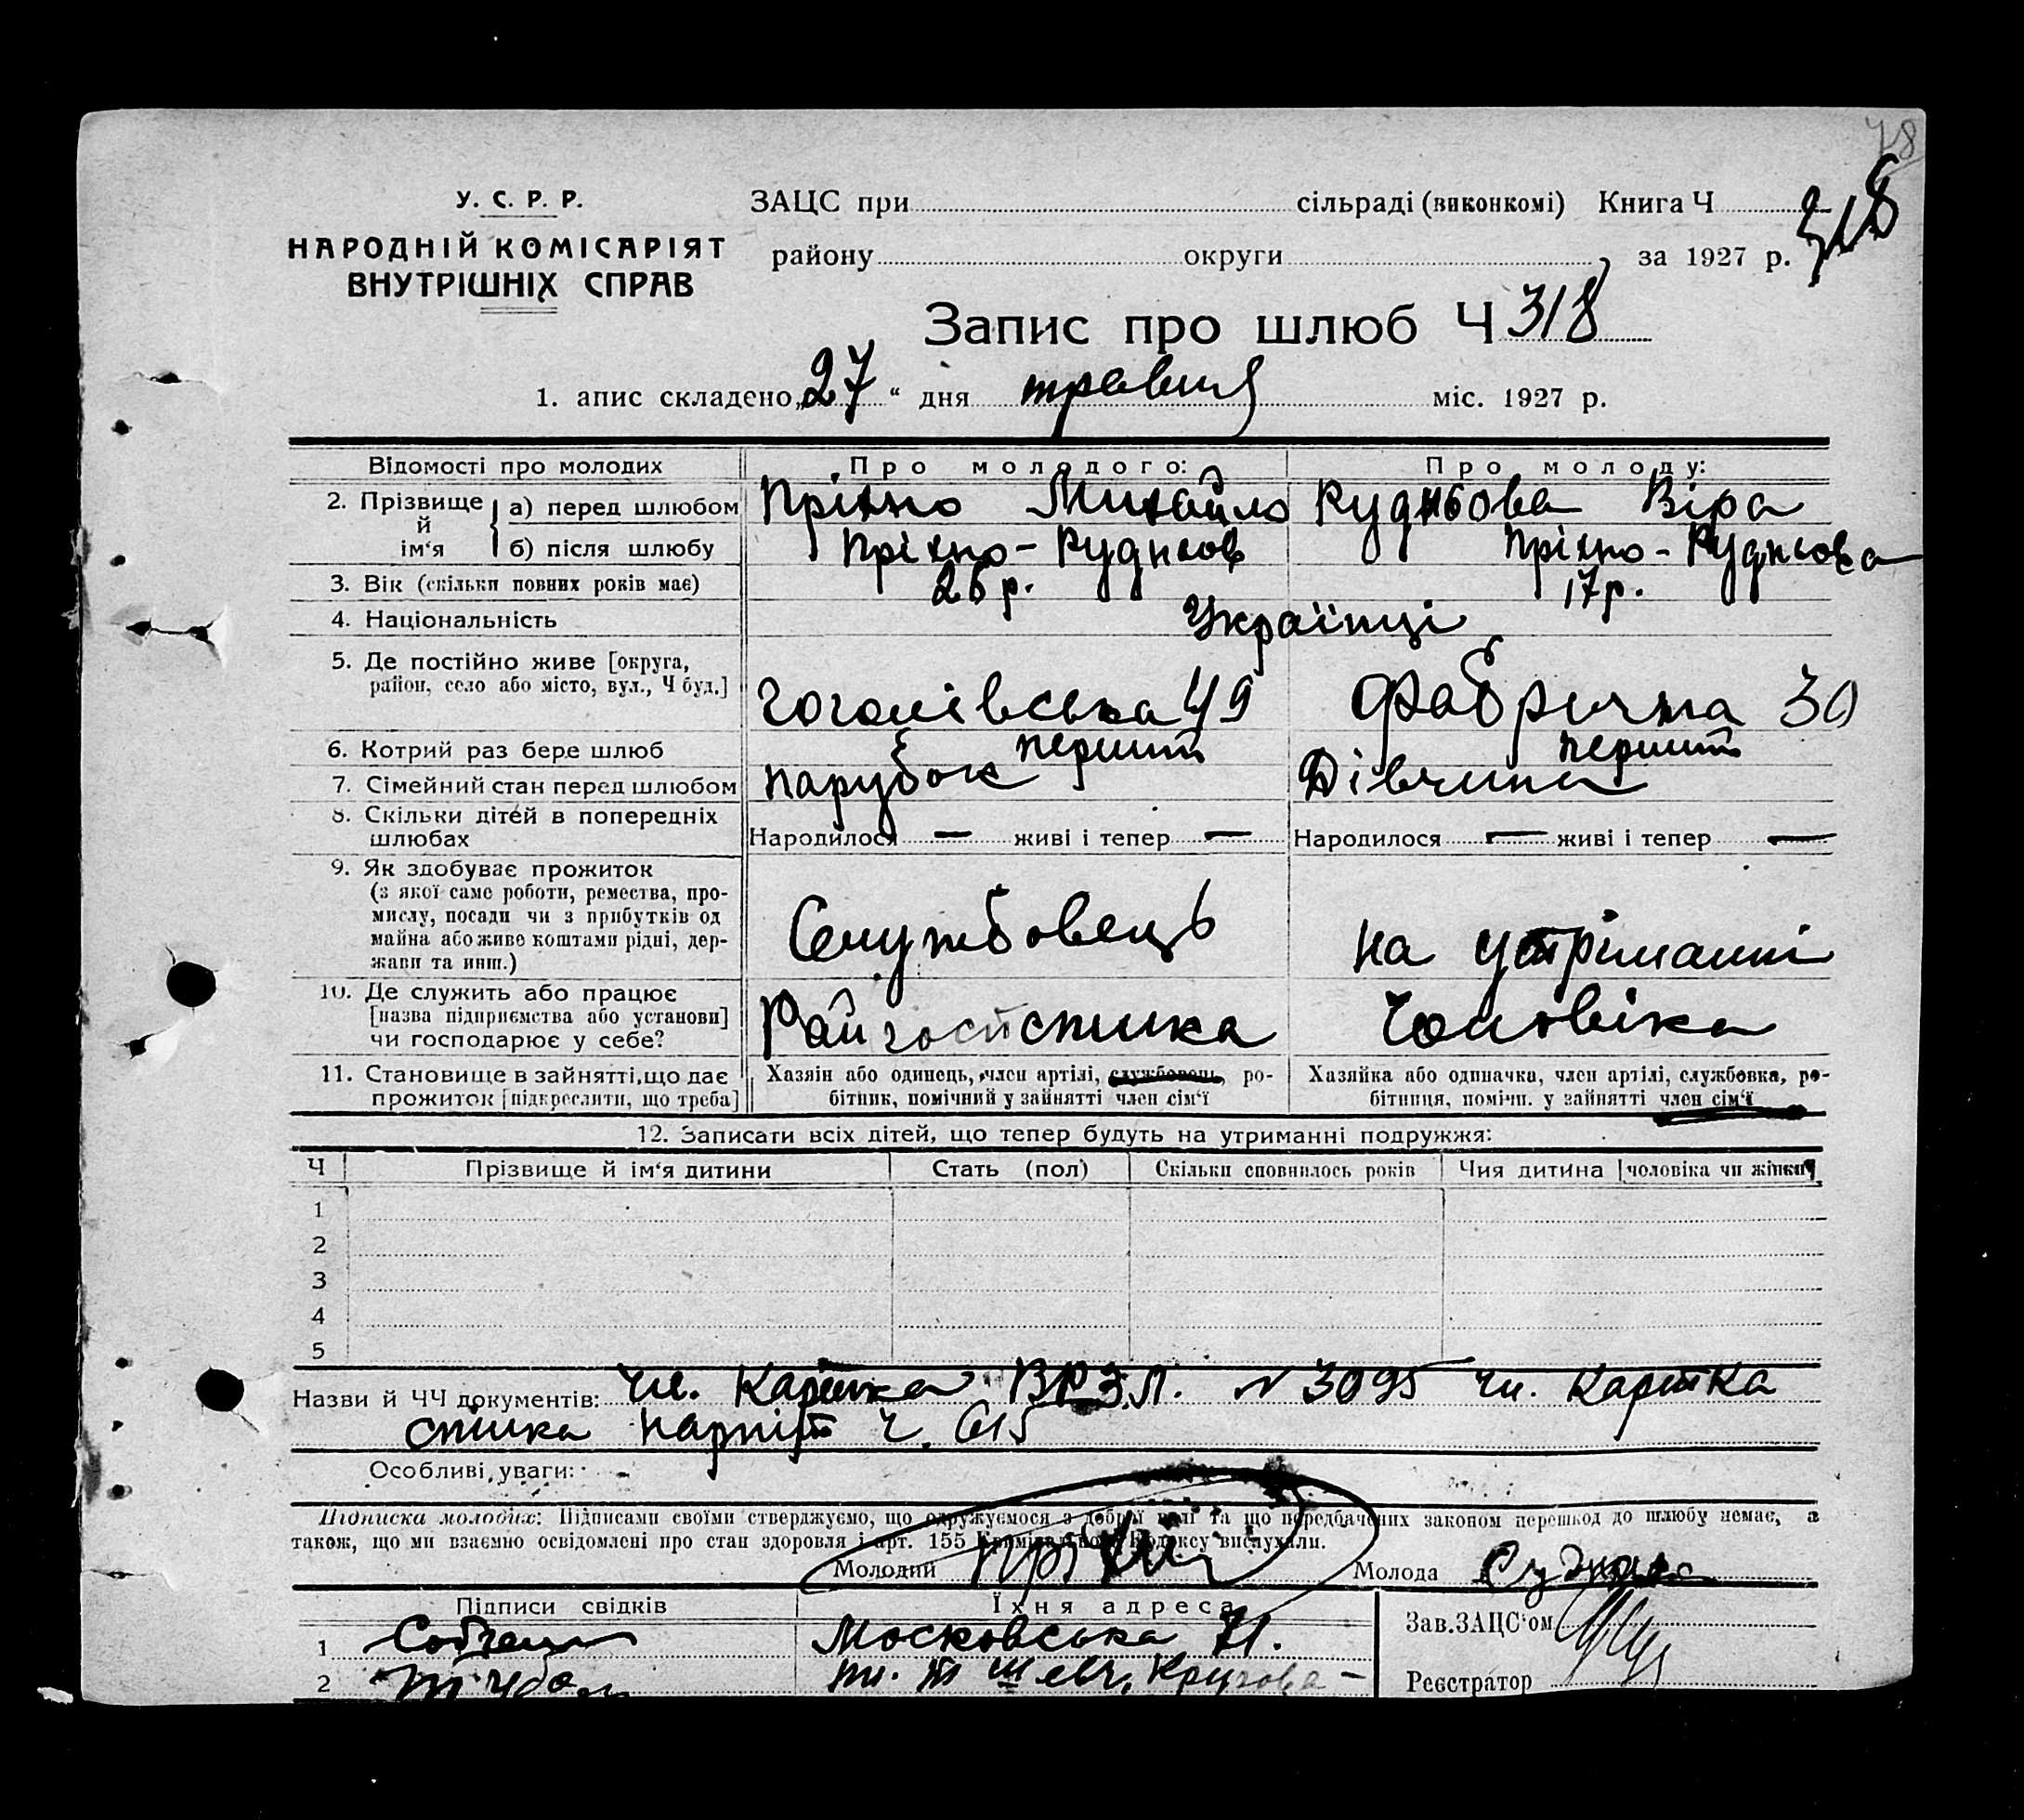 78
У. С. Р. Р.
НАРОДНІЙ КОМІСАРІЯТ
ВНУТРІШНІХ СПРАВ
ЗАЦС при сільраді (виконкомі) Книга Ч 318
району округи за 1927 р.
Запис про шлюб Ч 318
1. апис складено „27“ дня травня міс. 1927 р.
Відомості про молодих Про молодого: Про молоду:
2. Прізвище й ім‘я
а) перед шлюбом Пріхно Михайло Руднєова Віра
б) після шлюбу Пріхно-Руднєов Пріхно-Руднєова
3. Вік (скільки повних років має) 26 р. 17 р.
4. Національність Українці
5. Де постійно живе [округа,
район, село або місто, вул., Ч буд.] Гоголівська 49 Фабрична 30
6. Котрий раз бере шлюб перший перший
7. Сімейний стан перед шлюбом парубок Дівчина
8. Скільки дітей в попередніх
шлюбах Народилося — живі і тепер — Народилося — живі і тепер —
9. Як здобуває прожиток
(з якої саме роботи, ремества, про-
мислу, посади чи з прибутків од
майна або живе коштами рідні, дер-
жави та инш.) Службовець на утріманні
10. Де служить або працює
[назва підприємства або установи]
чи господарює у себе? Чоловіка
11. Становище в зайнятті, що дає
прожиток [підкреслити, що треба]
Хазяін або одинець, член артілі, службовець, ро-
бітник, помічний у зайнятті член сім‘ї
Хазяйка або одиначка, член артілі, службовка, ро-
бітниця, помічн. у зайнятті член сім‘ї
12. Записати всіх дітей, що тепер будуть на утриманні подружжя:
Ч Прізвище й ім‘я дитини Стать (пол) Скільки сповнилось років Чия дитина [чоловіка чи жінки]
1
2
3
4
5
Назви й ЧЧ документів: чл. Картка № 3095 чл. Картка
спілка нарпіт ч. 615
Особливі уваги: -
Підписка молодих: Підписами своїми стверджуємо, що одружуємося з доброї волі та що передбачених законом перешкод до шлюбу немає, а
також, що ми взаємно освідомлені про стан здоровля і арт. 155 Кримінального Кодексу вислухали.
Молодий Молода
Підписи свідків Їхня адреса Зав.ЗАЦС‘ом
1 Московська 71.
2 Реєстратор